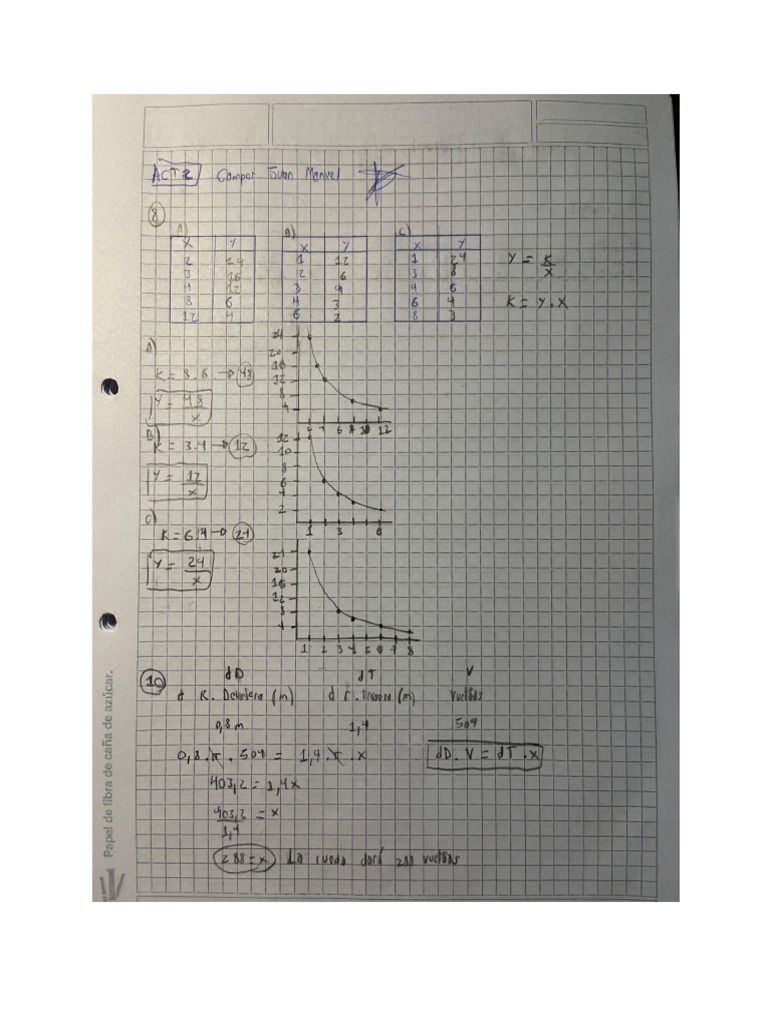 ACT 2 Campos Juan Manuel
8
A) B) C)
X Y X Y X Y
2 24 1 12 1 24 Y = K/X
3 16 2 6 3 8
4 12 3 4 4 6 K = Y . X
8 6 4 3 6 4
12 4 6 2 8 3
A)
K = 8.6 → 48
Y = 48/X
24
20
16
12
8
4
B)
K = 3.4 → 12
Y = 12/X
12
10
8
6
4
2
1 3 6
C)
K = 6.4 → 24
Y = 24/X
24
20
16
12
8
4
1 2 3 4 5 6 7 8
10 dD dT V
d R. Delantera (m) d r. trasera (m) vueltas
0,8 m 1,4 504
0,8 . π . 504 = 1,4 . π . x dD . V = dT . x
403,2 = 1,4x
403,2/1,4 = x
288 = x La rueda dará 288 vueltas
Papel de fibra de caña de azúcar.